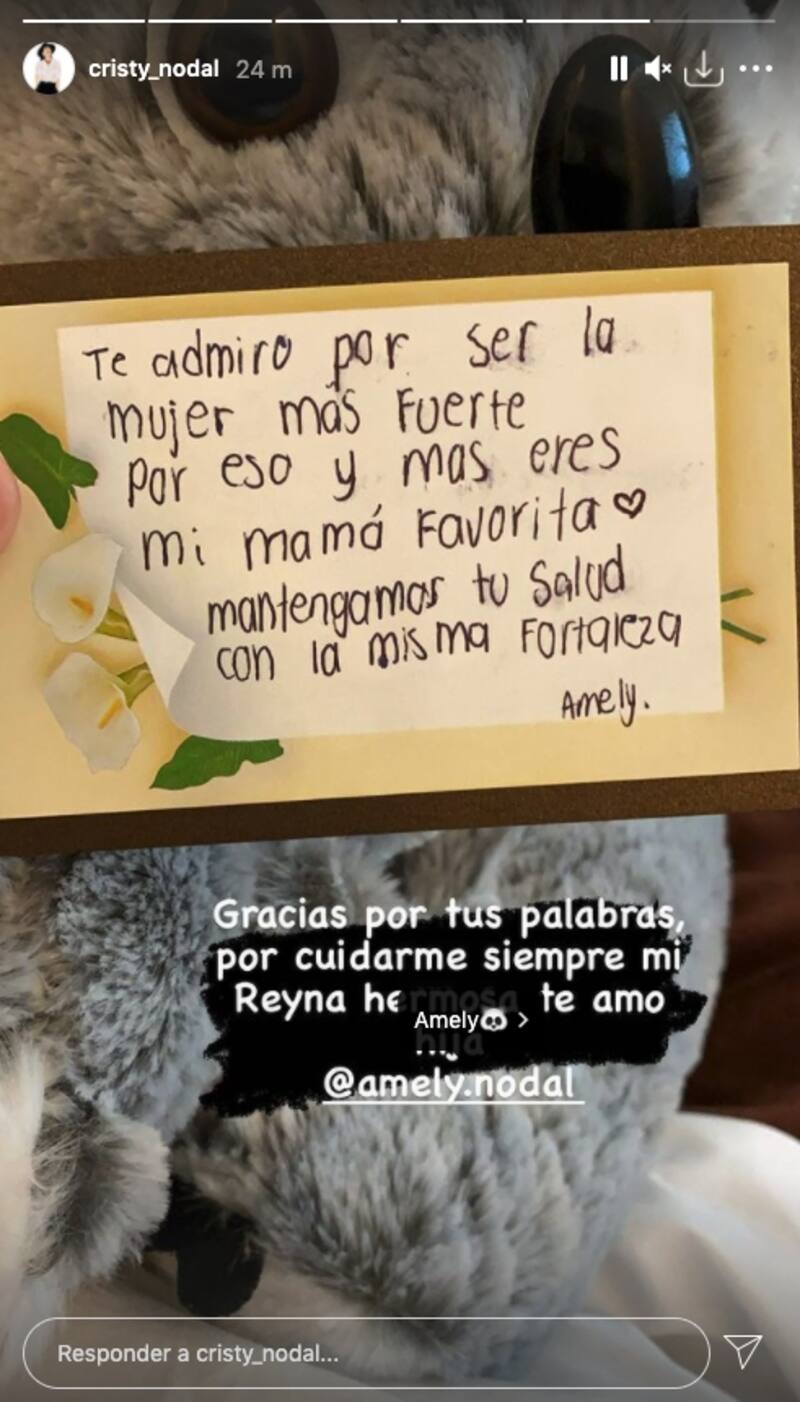 cristy_nodal 24 m
Te admiro por ser la
mujer más Fuerte
por eso y mas eres
mi mamá Favorita
mantengamos tu Salud
con la misma Fortaleza
Amely.
Gracias por tus palabras,
por cuidarme siempre mi
Reyna hermosa te amo
Amely >
hija
@amely.nodal
Responder a cristy_nodal...